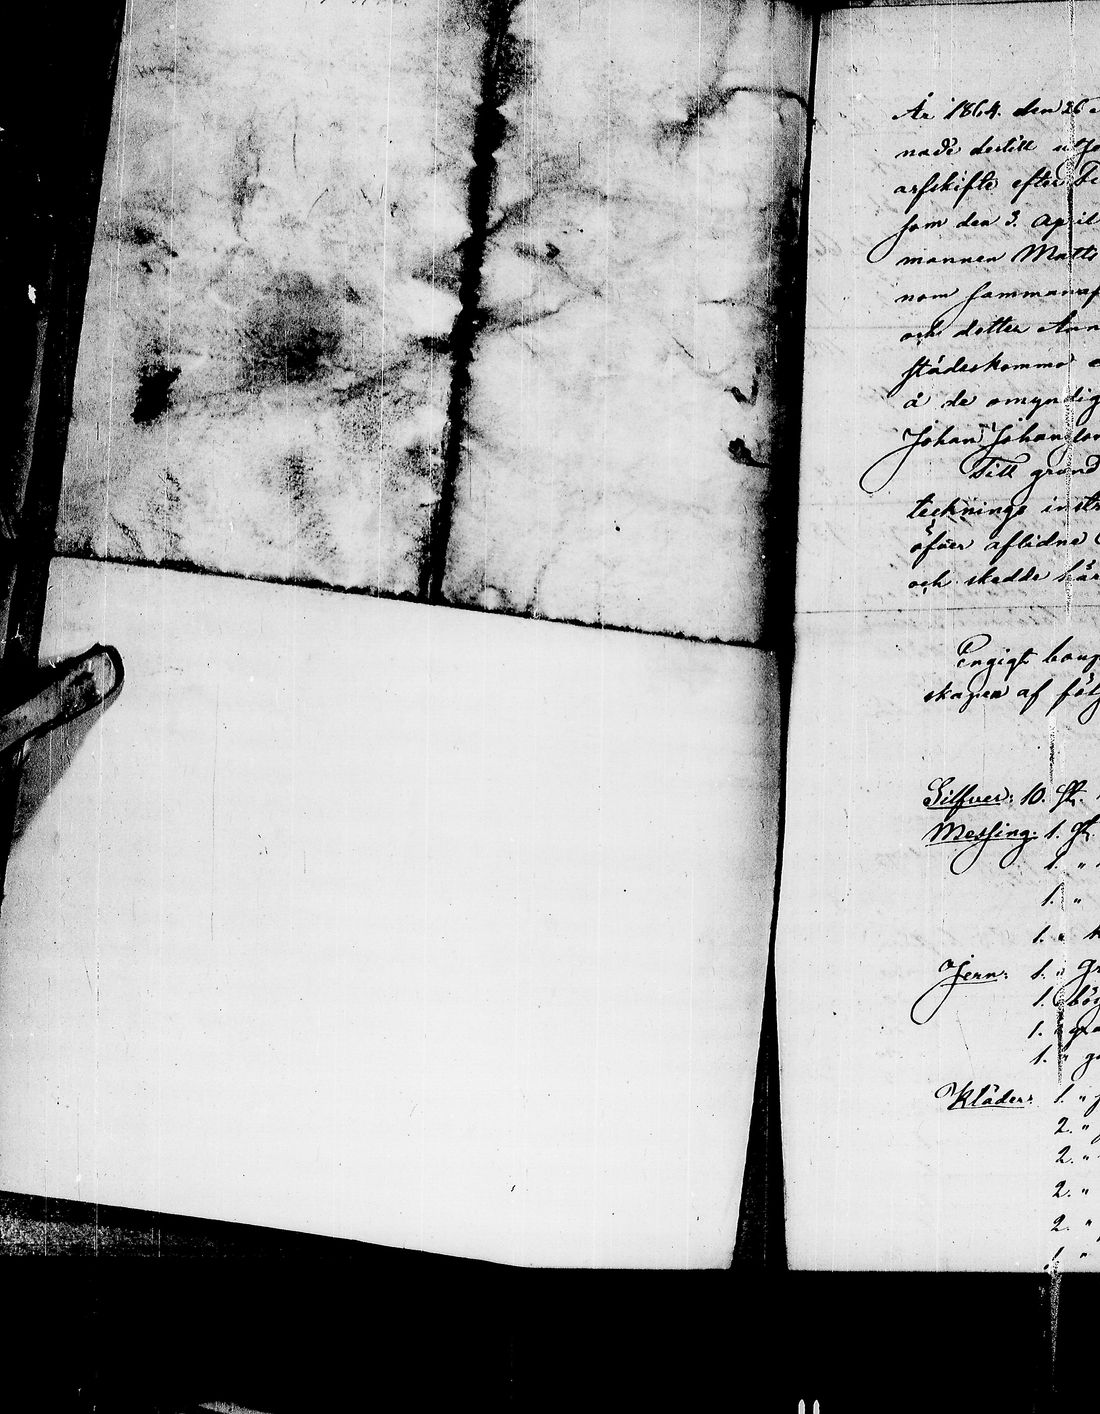 År 1864. den 26
nade dertill utse
arfskifte efter
som den 3. April
mannen Matts
nom sammanaf
och dotter Ann
städeskommo
å de omyndig
Johan Johansson
Till grund
tecknings instr
öfver aflidne
och skedde här
Engigt boup
skapen af följ
Silfver: 10. St.
Messing: 1. St.
1. "
1. "
1. " k
Jern: 1. " gr
1. " bög
1. " gr
1. " g
Kläder: 1. "
2. "
2. "
2. "
2. "
1. "